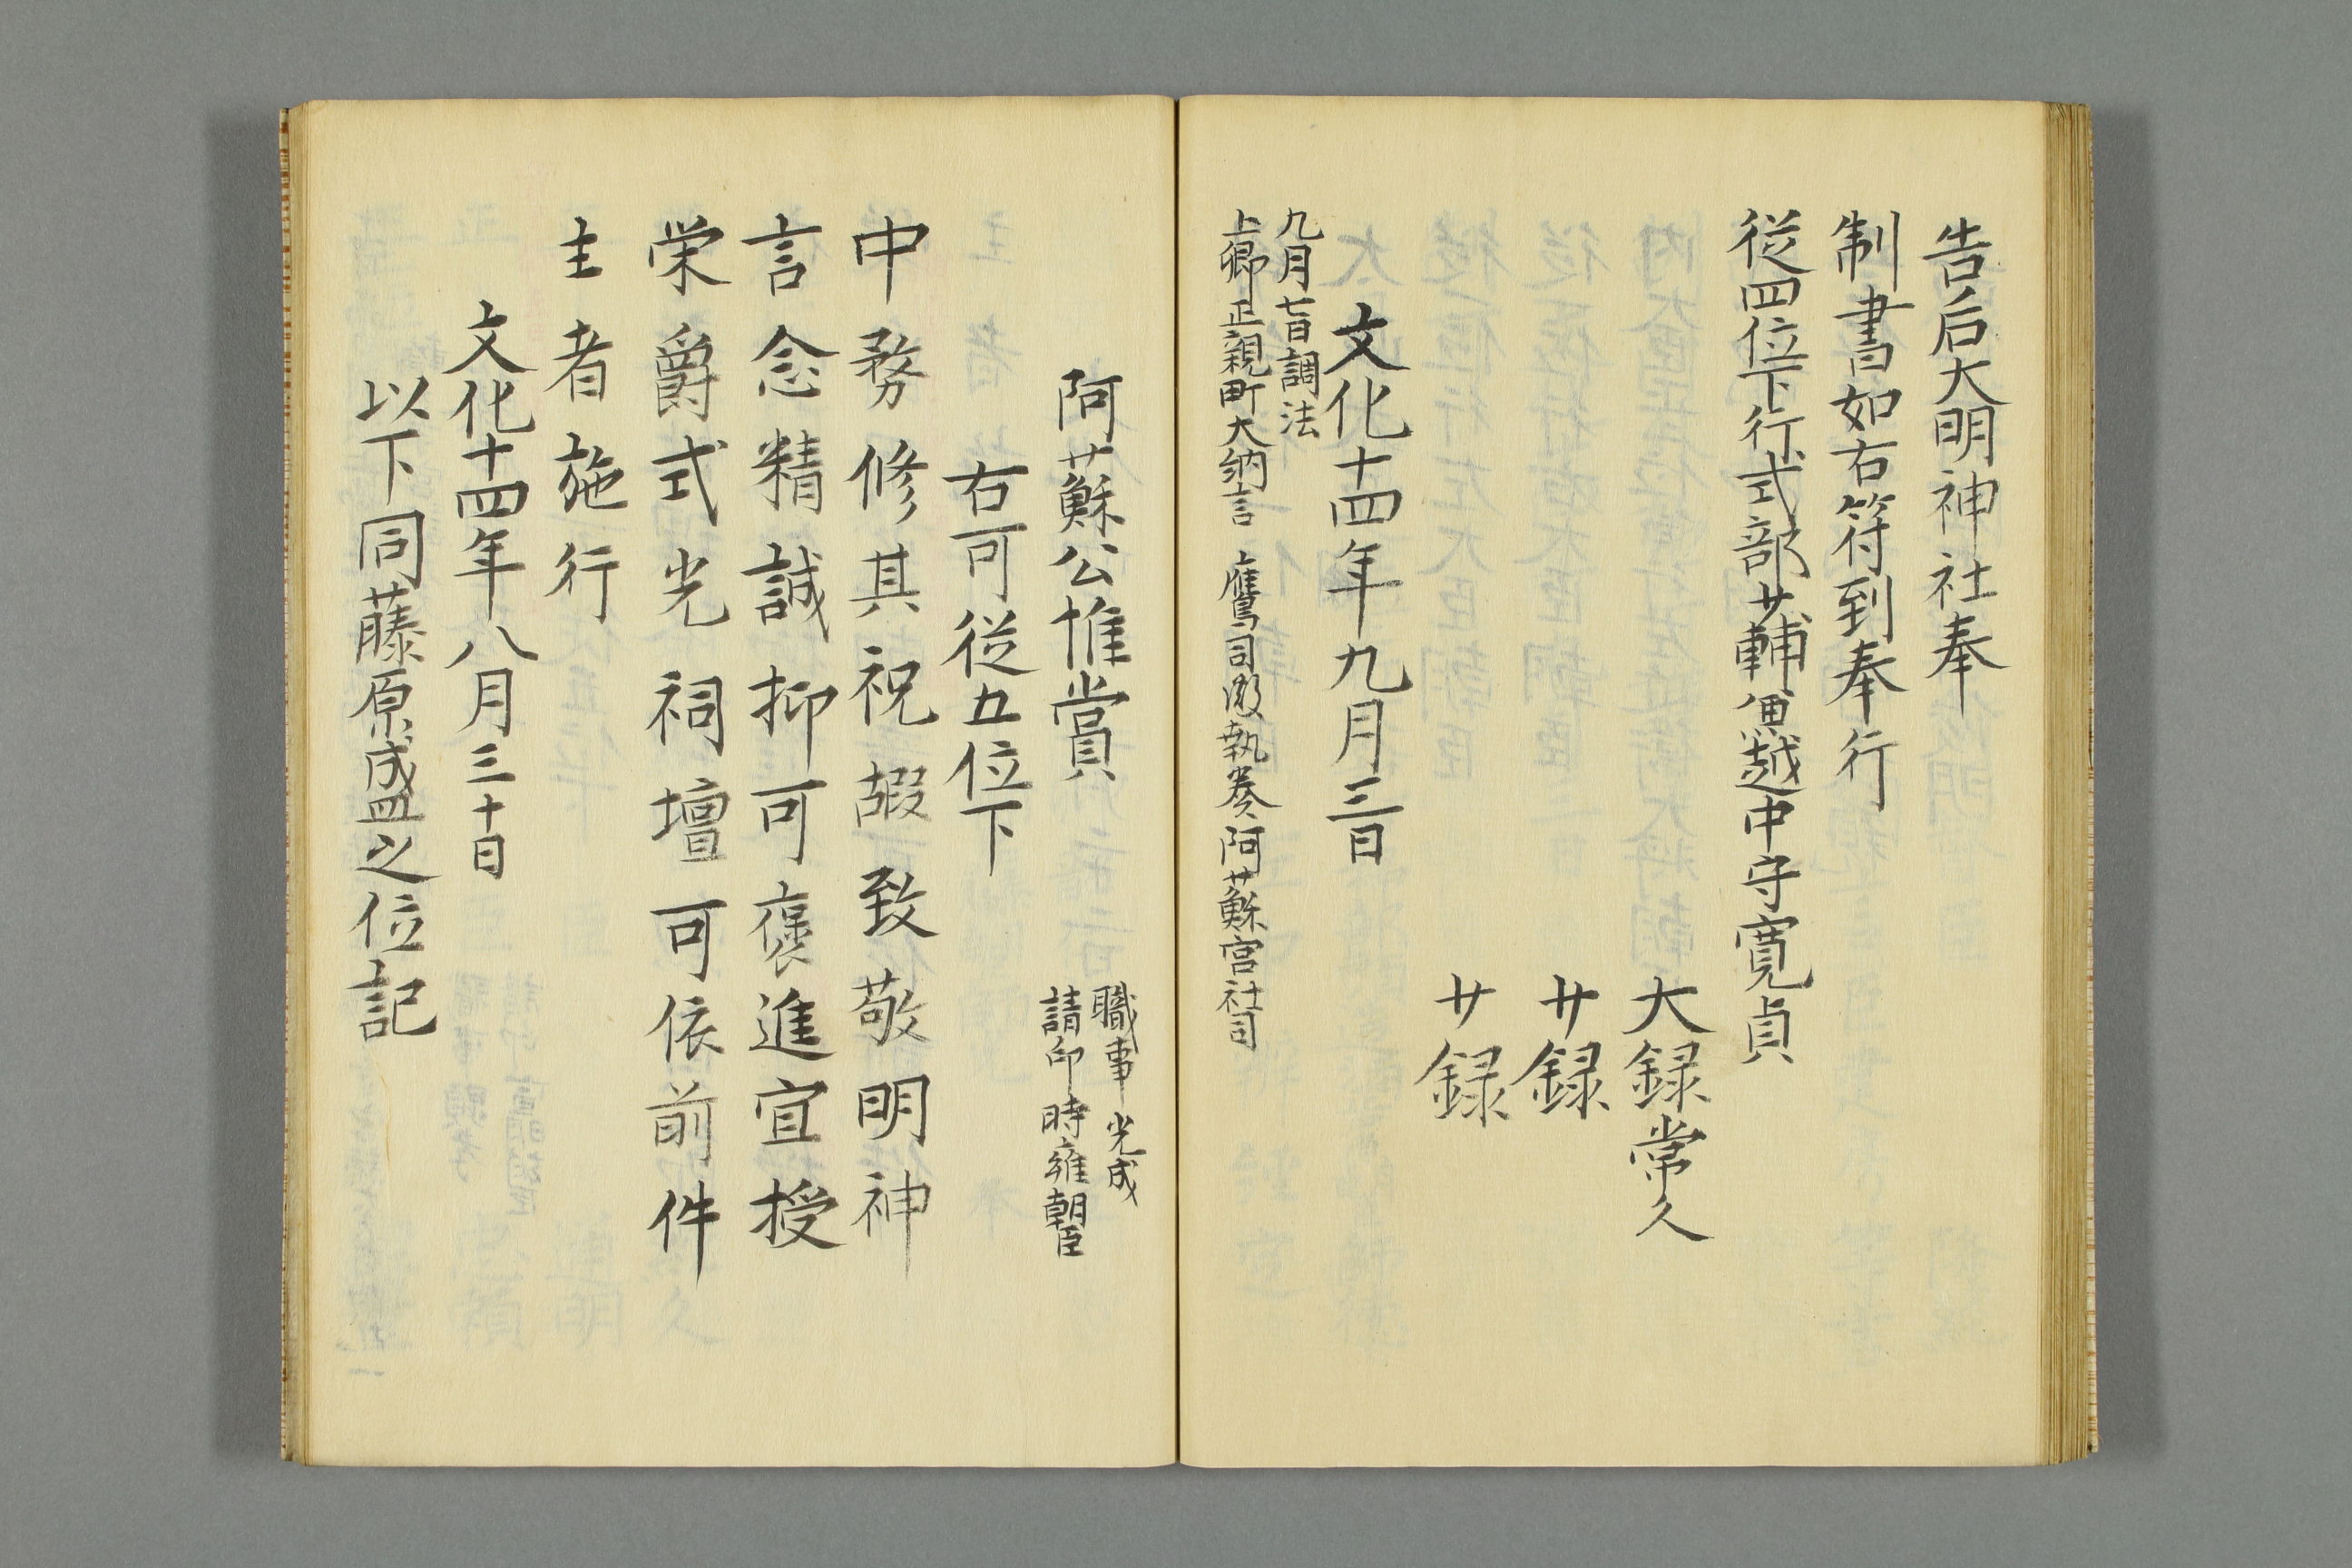 告后大明神社奉
制書如右符到奉行
従四位下行式部少輔兼越中守寛貞
大録常久
少録
少録
文化十四年九月三日
九月七日調法
上卿正親町大納言 鷹司殿執奏阿蘓宮社司
職事光成
請印時雍朝臣
阿蘓公惟賞
右可従五位下
中務修其祝嘏致敬明神
言念精誠抑可褒進宜授
栄爵式光祠壇可依前件
主者施行
文化十四年八月三十日
以下同藤原盛之位記